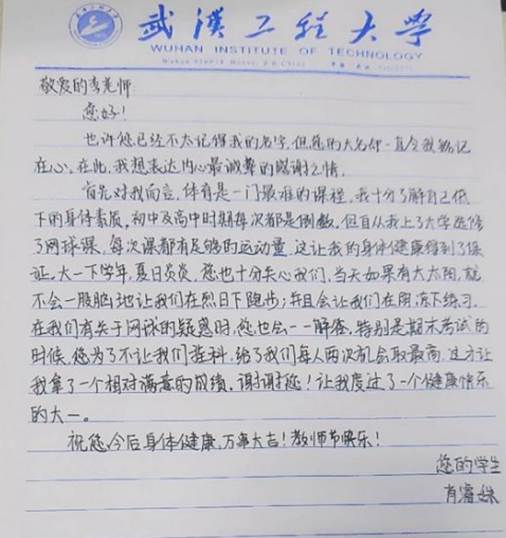 武汉工程大学
WUHAN INSTITUTE OF TECHNOLOGY
敬爱的李老师
您好!
也许您已经不太记得我的名字,但您的大名却一直令我铭记
在心。在此,我想表达内心最诚挚的感谢之情.
首先对我而言,体育是一门最难的课程,我十分了解自己低
下的身体素质,初中及高中时期每次都是倒数,但自从我上了大学选修
了网球课,每次课都有足够的运动量,这让我的身体健康得到了保
证,大一下学年,夏日炎炎,您也十分关心我们,当天如果有大太阳,就
不会一股脑地让我们在烈日下跑步;并且会让我们在阴凉下练习.
在我们有关于网球的疑惑时,您也会一一解答,特别是期末考试的
时候,您为了不让我们挂科,给了我们每人两次机会取最高,这才让
我拿了一个相对满意的成绩,谢谢您!让我度过了一个健康快乐
的大一。
祝您今后身体健康,万事大吉!教师节快乐!
您的学生
肖睿姝